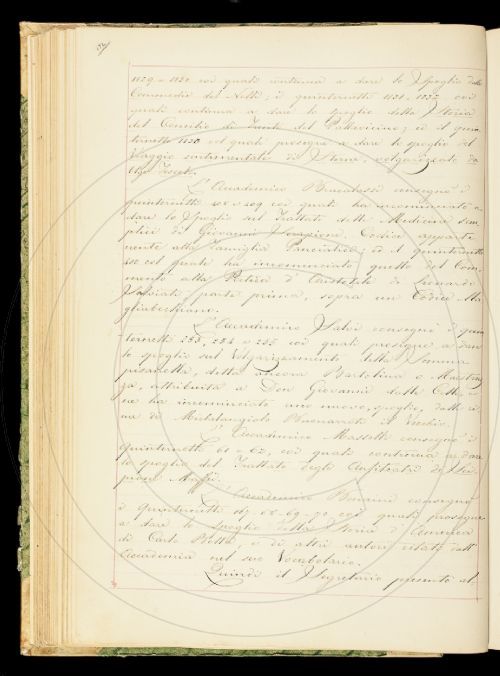 1829 e 1830 coi quali continua a dare lo spoglio delle
Commedie del Nelli; i quinternetti 1831, 1832 coi
quali continua a dare lo spoglio della Storia
del Concilio di Trento del Pallavicino; ed il quin
ternetto 1833 col quale prosegue a dare lo spoglio del
Viaggio sentimentale di Sterne, volgarizzato da
Ugo Foscolo.
L'Accademico Brucalassi consegnò i
quinternetti 808 e 809 coi quali ha incominciato a
dare lo spoglio sul Trattato delle Medicine sem
plici di Giovanni Serapione, Codice apparte
nente alla famiglia Panciatichi, ed il quinternetto
col quale ha incominciato quello del Com
mento alla Rettorica d'Aristotele di Leonardo
Salviati parte prima, sopra un Codice Ma
gliabechiano.
L'Accademico Salvi consegnò i quin
ternetti 233, 234 e 235 coi quali prosegue a dare
lo spoglio sul Volgarizzamento della Somma
pisanella, detta ancora Bartolina e Maestruz
za, attribuita a Don Giovanni dalle Celle,
ne ha incominciato uno nuovo, spoglio, delle ri
me di Michelangiolo Buonarroti il Vecchio.
L'Accademico Masselli consegnò i
quinternetti 61 e 62, coi quali continua a dare
lo spoglio del Trattato degli Anfiteatri di Sci
pione Maffei.
L'Accademico Bonaini consegnò
i quinternetti 67-68-69-70 coi quali prosegue
a dare lo spoglio della Storia d'America
di Carlo Botta, e di altri autori citati dall'
Accademia nel suo Vocabolario.
Quindi il Segretario presentò al-